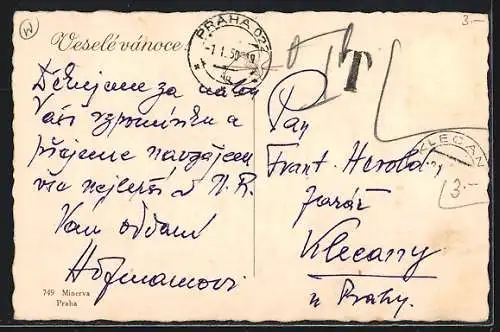 Veselé vánoce
PRAHA 022
-1.1.50
T
3.-
Děkujeme za
vzpomínku a
přejeme navzájem
vše nejlepší v N.R.
Vám oddaní
Hofmanovi
Pan
Frant. Herold,
farář
Klecany
u Prahy.
KLECAN
3.-
749 Minerva
Praha
W